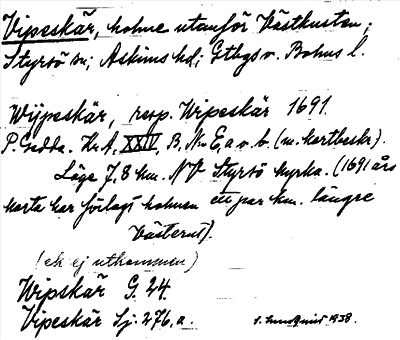 Vipeskär, holme utanför Västkusten;
Styrsö sn; Askims hd; Gtbgs o. Bohus l.
Wijpeskär, resp. Wipeskär 1691.
P. Gedda. Kr. A. XXIV, B. Nr E, a o. b. (m. kartbeskr).
Läge 7,8 km. NV Styrsö kyrka. (1691 års
karta har förlagt holmen ett par km. längre
västerut).
(ek ej utkommen)
Wipskär G. 24.
Vipeskär Sj. 276, a. S. Lundquist 1938.